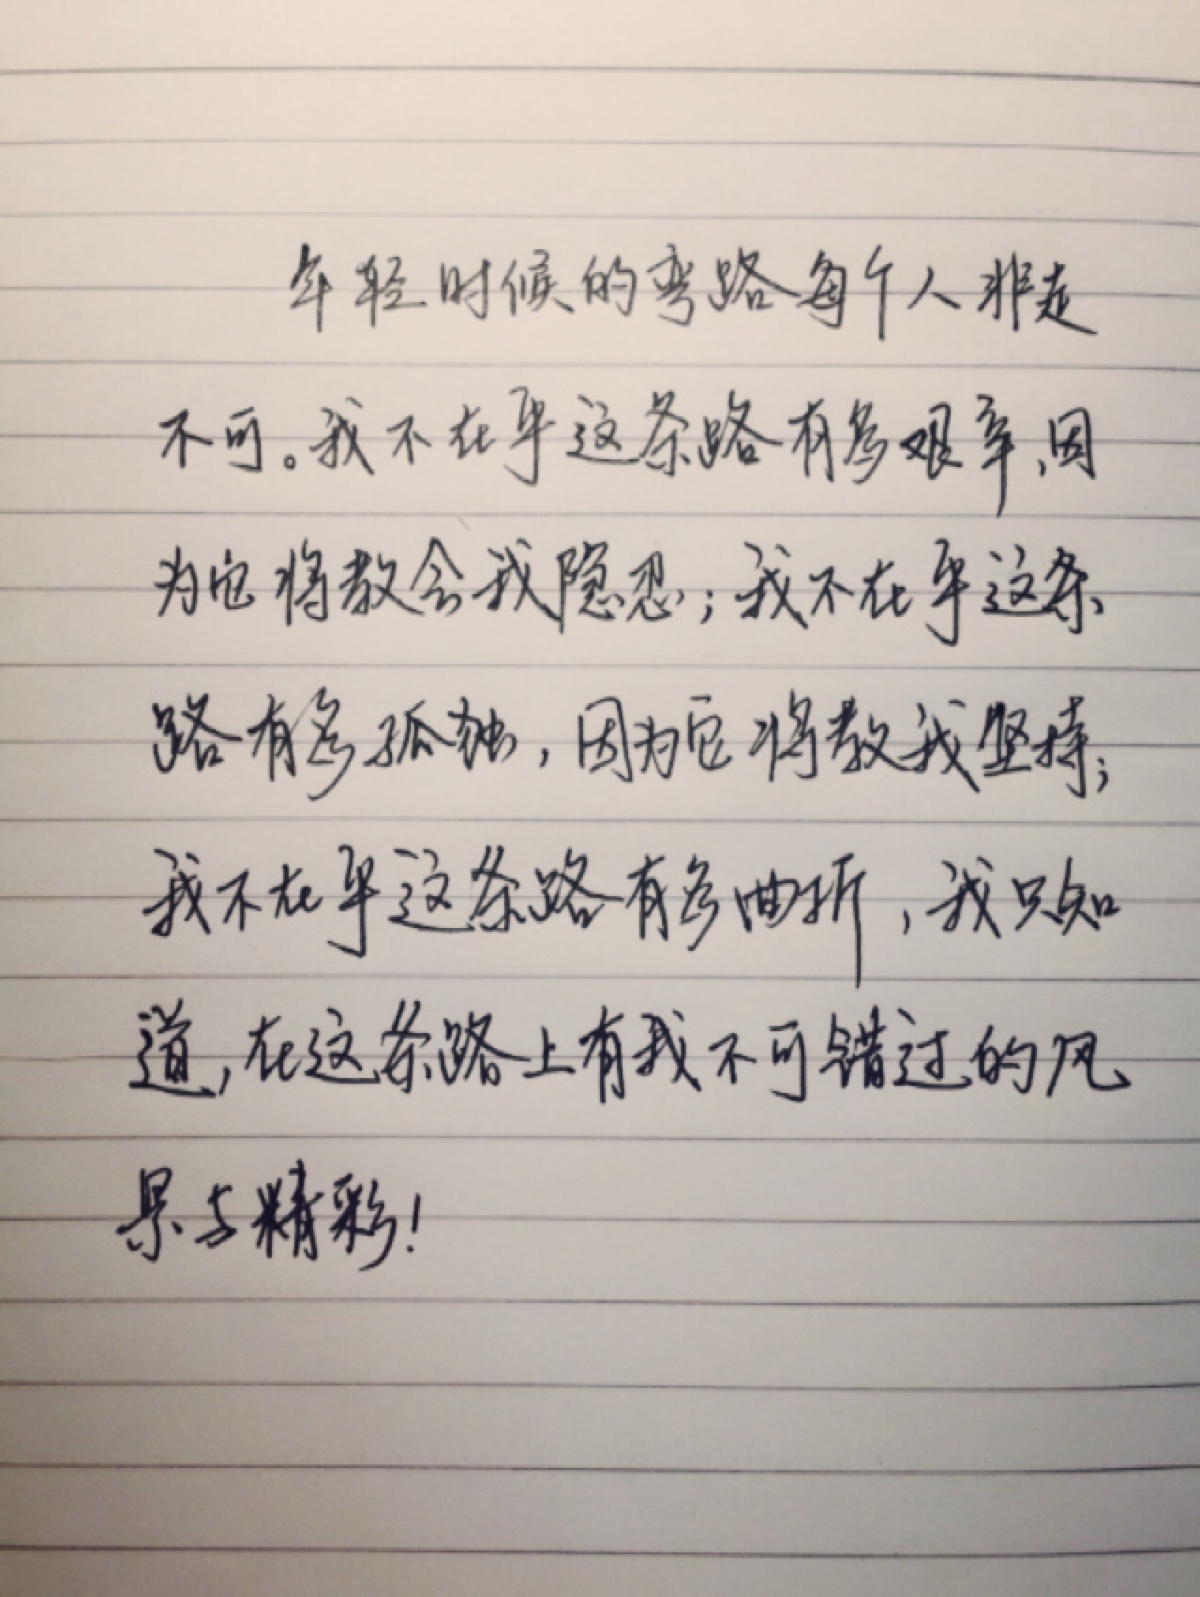 年轻时候的弯路每个人非走
不可。我不在乎这条路有多艰辛,因
为它将教会我隐忍；我不在乎这条
路有多孤独，因为它将教我坚持；
我不在乎这条路有多曲折，我只知
道，在这条路上有我不可错过的风
景与精彩！